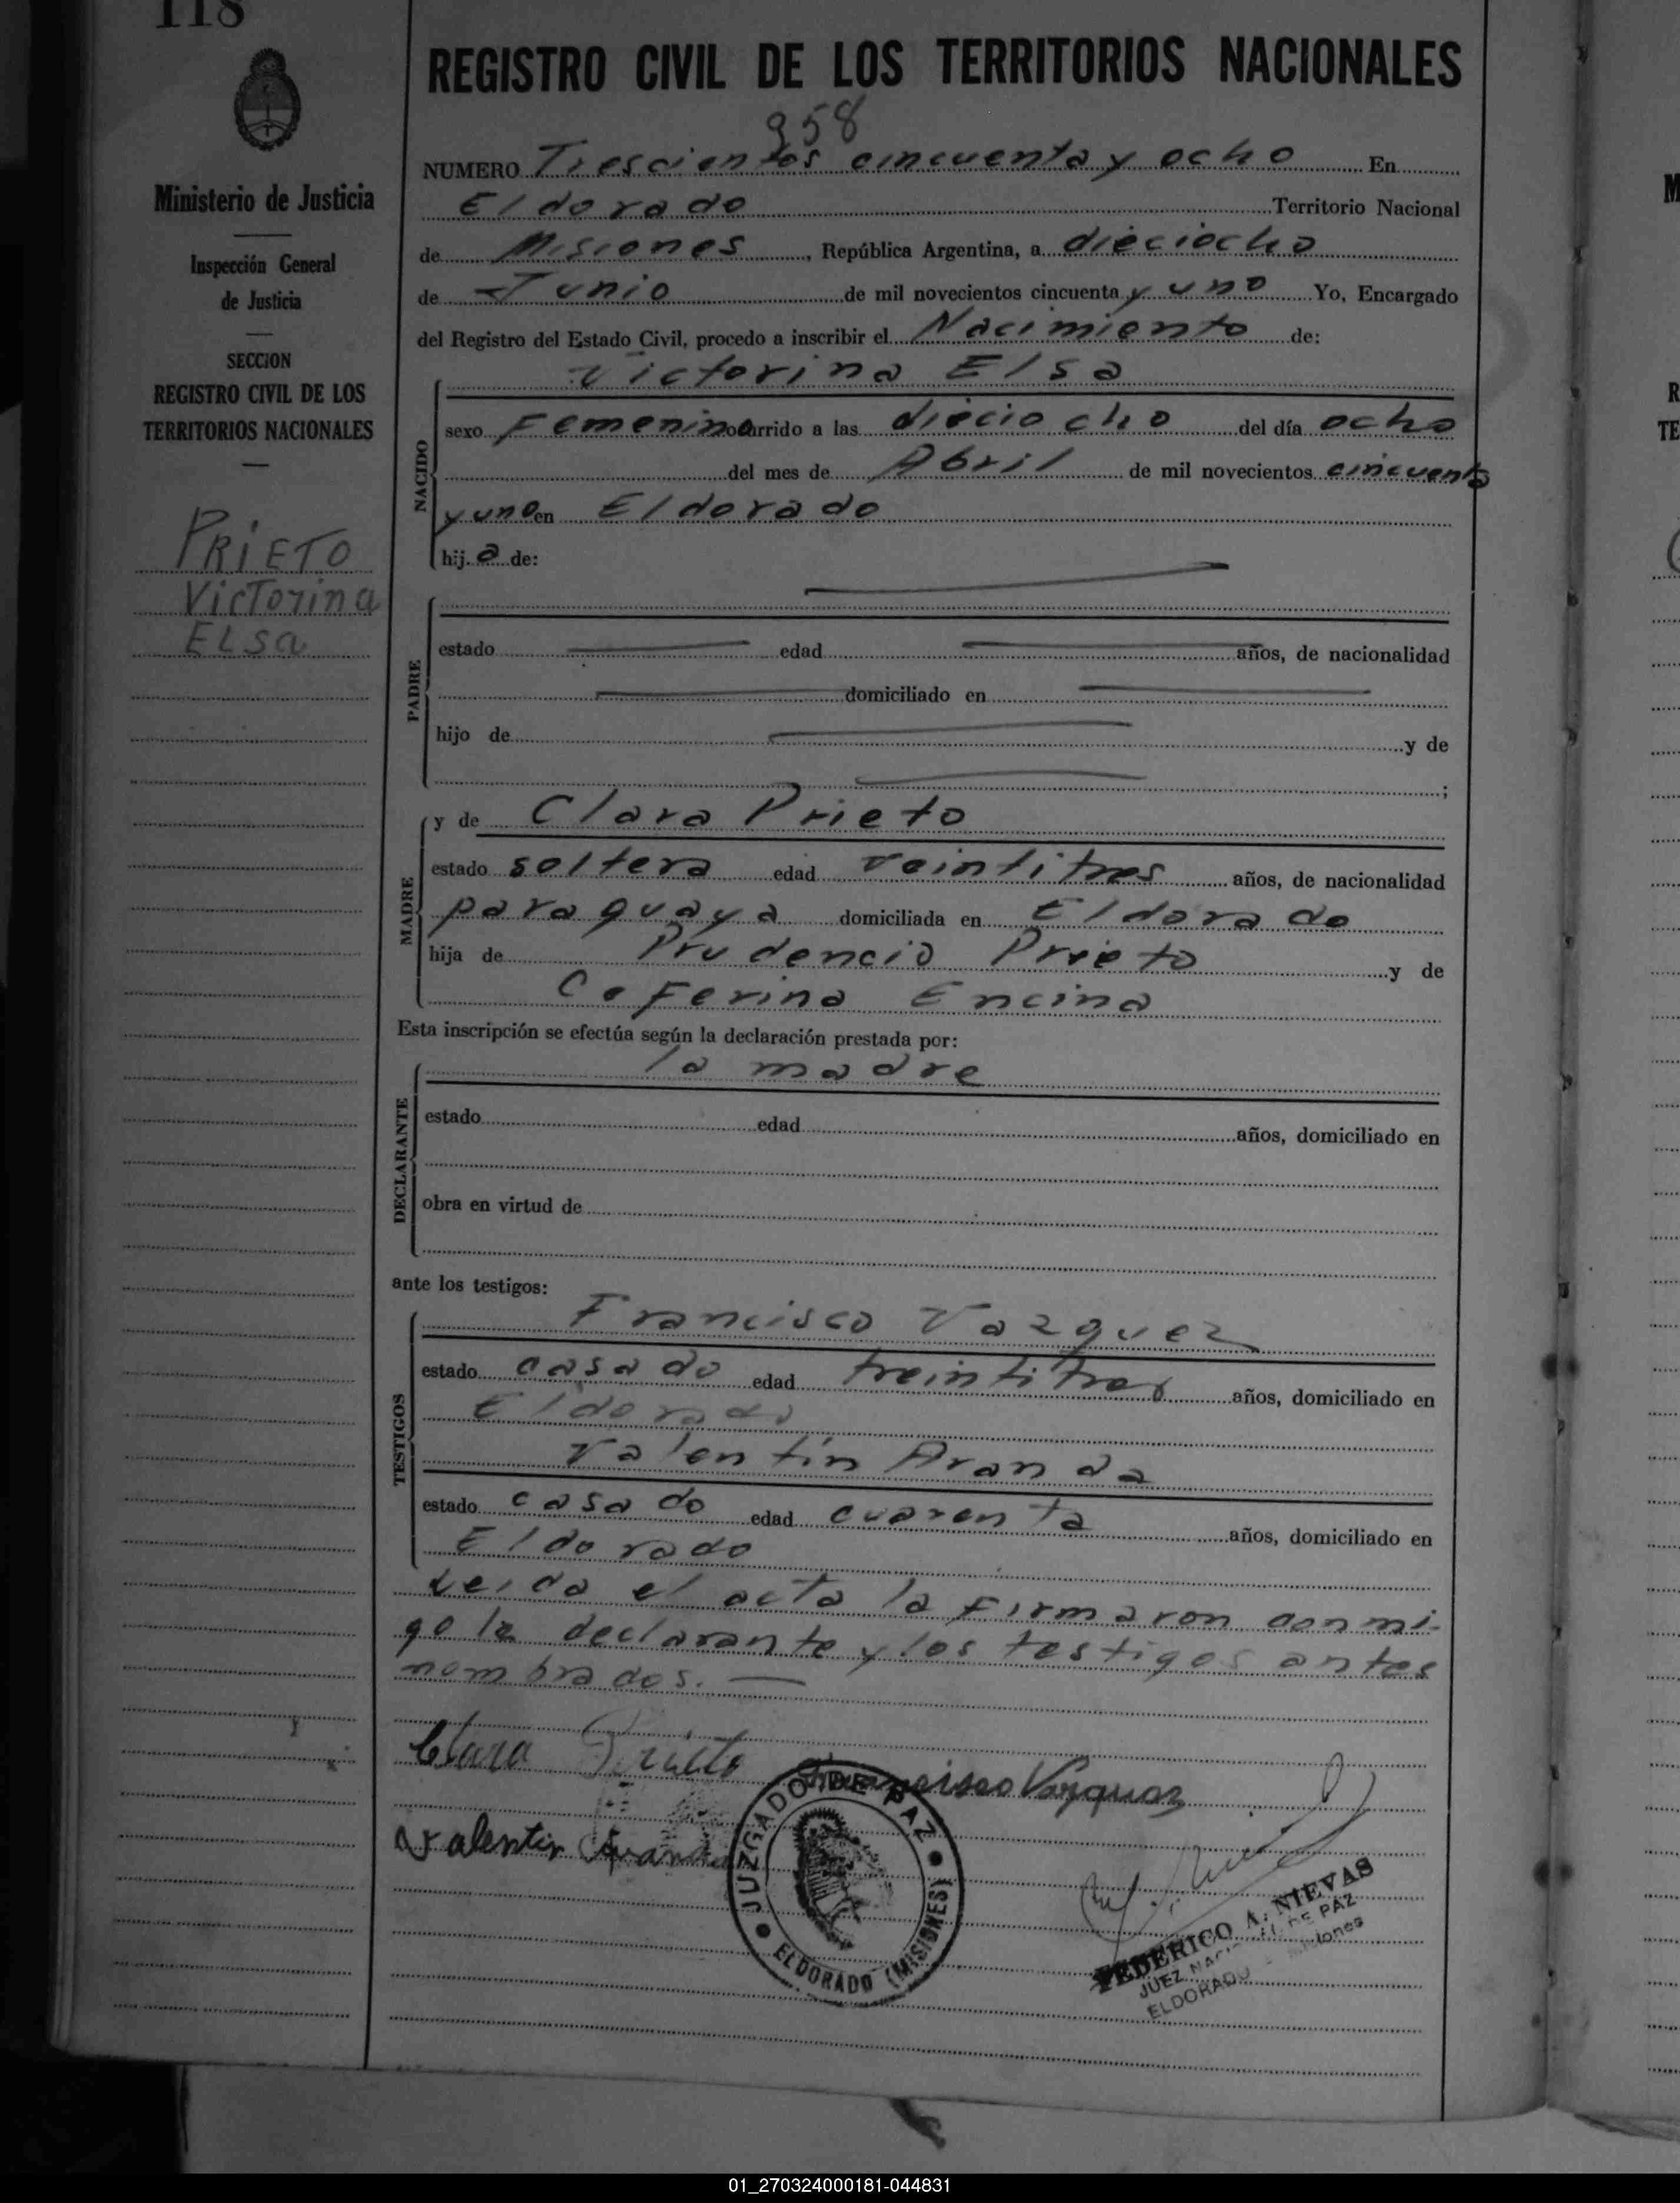 118
REGISTRO CIVIL DE LOS TERRITORIOS NACIONALES
Ministerio de Justicia
Inspección General
de Justicia
SECCION
REGISTRO CIVIL DE LOS
TERRITORIOS NACIONALES
PRIETO
Victorina
ELSa
358
NUMERO Trescientos cincuenta y ocho En
Eldorado Territorio Nacional
de Misiones, República Argentina, a dieciocho
de Junio de mil novecientos cincuenta y uno Yo, Encargado
del Registro del Estado Civil, procedo a inscribir el Nacimiento de:
NACIDO
Victorina Elsa
sexo Femenino ocurrido a las dieciocho del día ocho
del mes de Abril de mil novecientos cincuenta
y uno en Eldorado
hij a de:
PADRE
estado edad años, de nacionalidad
domiciliado en
hijo de y de
;
MADRE
y de Clara Prieto
estado soltera edad veintitres años, de nacionalidad
paraguaya domiciliada en Eldorado
hija de Prudencio Prieto y de
Ceferina Encina
Esta inscripción se efectúa según la declaración prestada por:
DECLARANTE
la madre
estado edad años, domiciliado en
obra en virtud de
ante los testigos:
TESTIGOS
Francisco Vazquez
estado casado edad treintitres años, domiciliado en
Eldorado
Valentín Aranda
estado casado edad cuarenta años, domiciliado en
Eldorado
Leida el acta la firmaron conmi-
go la declarante y los testigos antes
nombrados.
Clara Prieto
Francisco Vazquez
Valentin Aranda
JUZGADO DE PAZ
ELDORADO (MISIONES)
FEDERICO A. NIEVAS
JUEZ DE PAZ
ELDORADO - Misiones
M
R
TE
01_270324000181-044831